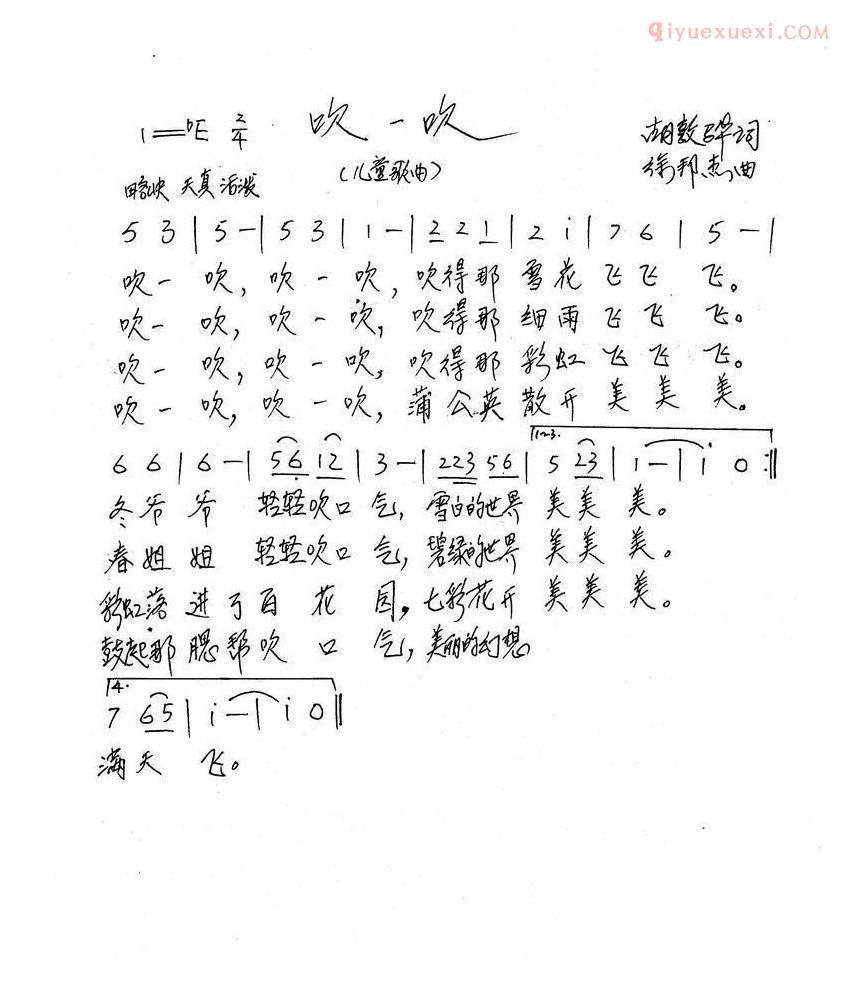 qiyuexuexi.COM
1=ᵇE 2/4 吹一吹
(儿童歌曲) 词
徐邦杰曲
略快 天真活泼
5 3 | 5 - | 5 3 | 1 - | 2 2 1 | 2 i | 7 6 | 5 - |
吹一吹,吹一吹,吹得那雪花飞飞飞。
吹一吹,吹一吹,吹得那细雨飞飞飞。
吹一吹,吹一吹,吹得那彩虹飞飞飞。
吹一吹,吹一吹,蒲公英散开美美美。
1.2.3.
6 6 | 6 - | 56 12 | 3 - | 223 56 | 5 23 | 1 - | i 0 :||
冬爷爷轻轻吹口气,雪白的世界美美美。
春姐姐轻轻吹口气,碧绿的世界美美美。
彩虹落进了百花园,七彩花开美美美。
鼓起那腮帮吹口气,美丽的幻想
4.
7 65 | i - | i 0 ||
满天飞。